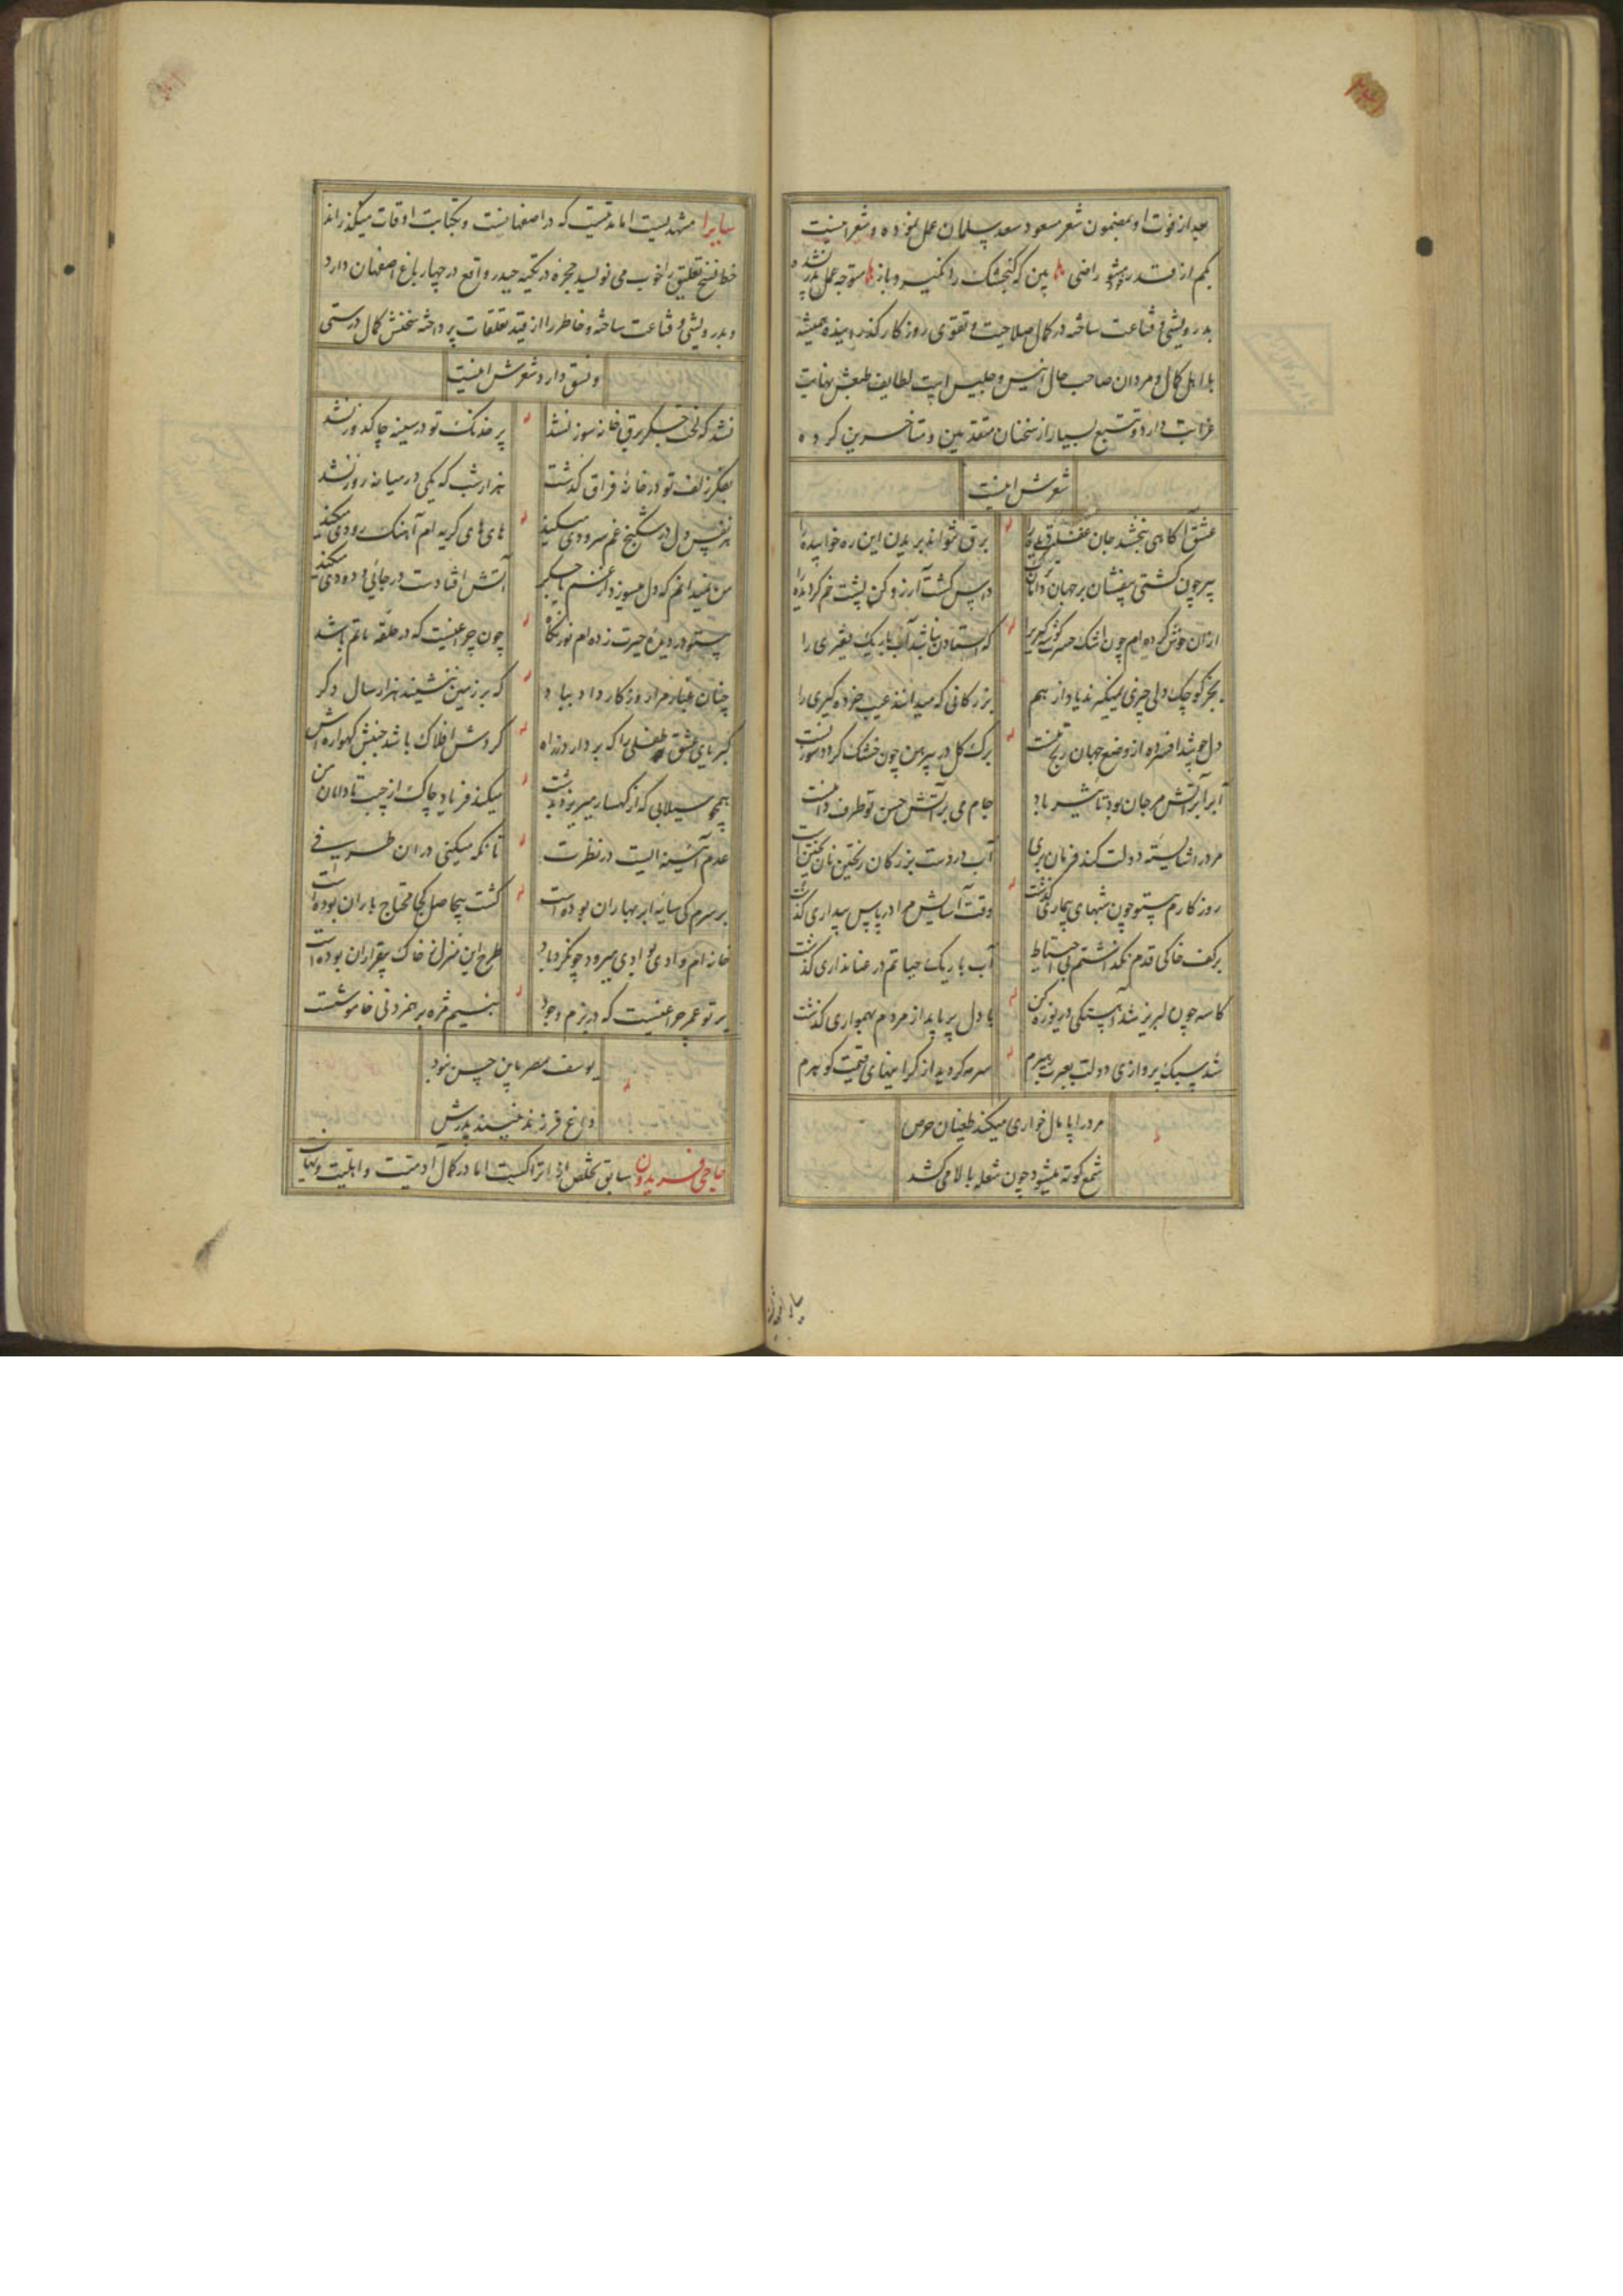 بعد از فوت او بمضمون شعر مسعود سعد سلمان عمل نموده و شعر اینست
بکم از قدر مشو راضی بین که گنجشک را نگیرد باز متوجه عمل پدر نشد و
بدرویشی و قناعت ساخته در کمال صلاحیت و تقوی روزگار گذرانیده همیشه
با اهل کمال و مردان صاحب حال انیس و جلیس است لطایف طبعش نهایت
غرابت دارد و تتبع بسیار از سخنان متقدمین و متاخرین کرده
شعرش اینست
عشق آگاهی نبخشد جان غفلت دیده را
برق نتواند بریدن این ره خوابیده را
پیر چون گشتی میفشان بر جهان دامان
در پس گشت آرزو کن پشت خم گردیده را
ازان خوش کرده ام چون اشک حسرت گوشه گیری را
که استادن نباشد آب باریک فقیری را
بجز کوچک دلی چیزی نمیگیرند یاد از هم
بزرگانی که میدانند عیب خرده گیری را
دل چو شد افسرده از وضع جهان رنج نیست
برگ گل در پیرهن چون خشک گردد سوزنست
ابر آتش مرجان بود تا شیر باد
جام می بر آتش حسن تو طرف دامنست
مرد را شایسته دولت کند فرمان بری
آب در دست بزرگان ریختن نان پختنست
روزگارم همچو چون شبهای بیماری گذشت
وقت آسایش مرا در پاس بیداری گذشت
بر کف خاکی قدم نگذاشتم بی احتیاط
آب باریک حیاتم در عنانداری گذشت
کاسه چون لبریز شد آهستگی دریوزه کن
با دل پر باید از مردم بهمواری گذشت
شد سبک پروازی دولت بعبرت رهبرم
سرمه گردید از گرانیهای قیمت گوهرم
مرد را پامال خواری میکند طغیان حرص
شمع کوته میشود چون شعله بالا می کشد
سایرا مشهدیست اما مدتیست که در اصفهانست و بکتابت اوقات میگذراند
خط نسخ تعلیق را خوب می نویسد حجره در تکیه حیدر واقع در چهار باغ اصفهان دارد
و بدرویشی و قناعت ساخته و خاطر را از قید تعلقات پرداخته سخنش کمال درستی
و نسق دارد شعرش اینست
نشد که لخت جگر برق خانه سوز نشد
پر خدنگ تو در سینه چاکدوز نشد
بفکر زلف تو در خانه فراق گذشت
هزار شب که یکی در میانه روز نشد
هر نفس دل در شکنج غم سرودی میکند
های های گریه ام آهنگ رودی میکند
من نمیدانم که دل میسوزد از غم یا جگر
آتش افتادست در جائی و دودی میکند
در دیده حیرت زده ام نور نگاه
چون چراغیست که در حلقه ماتم باشد
چنان غبار مرا روزگار داد بباد
که بر زمین ننشیند هزار سال دگر
کبریای عشق طفلی را که بردارد ز راه
گردش افلاک باشد جنبش گهواره اش
همچو سیلابی که از کهسار میریزد بدشت
میکند فریاد چاک از جیب تا دامان من
عدم آئینه ایست در نظرت
تا نگه میکنی در ان طرفی
بر سرم کی سایه ابر بهاران بوده است
کشت بیحاصل کجا محتاج باران بوده است
خانه ام وادی بوادی میرود چون گردباد
طرح این منزل ز خاک بیقراران بوده است
پرتو عمر چراغیست که در بزم وجود
بنسیم مژه بر همزدنی خاموشست
یوسف مصر باین حسن نبود
داغ فرزند نبیند پدرش
حاجی فریدون سابق تخلص از اتراکست اما در کمال آدمیت و اهلیت و نهایت